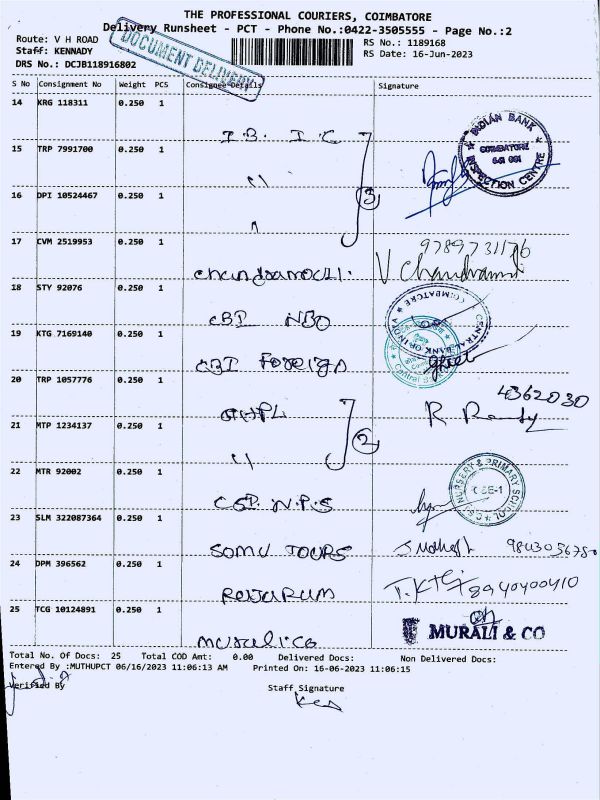 THE PROFESSIONAL COURIERS, COIMBATORE
Delivery Runsheet - PCT - Phone No.:0422-3505555 - Page No.:2
Route: V H ROAD
RS No.: 1189168
Staff: KENNADY
RS Date: 16-Jun-2023
DRS No.: DCJB118916802
DOCUMENT DELIVERY
S No Consignment No Weight PCS Consignee Details Signature
14 KRG 118311 0.250 1 I.B. I.C
INDIAN BANK
COIMBATORE
641 001
INSPECTION CENTRE
15 TRP 7991700 0.250 1 "
3
16 DPI 10524467 0.250 1 "
9789731176
17 CVM 2519953 0.250 1 Chandramouli. V Chandramouli
18 STY 92076 0.250 1 CBI NBO
CENTRAL BANK OF INDIA
COIMBATORE
19 KTG 7169140 0.250 1 CBI Foreign
4362030
20 TRP 1057776 0.250 1 R
21 MTP 1234137 0.250 1 "
2
22 MTR 92002 0.250 1 CSI. N.P.S
NURSERY & PRIMARY SCHOOL
CBE-1
23 SLM 322087364 0.250 1 SOMU TOURS
24 DPM 396562 0.250 1 8940400410
25 TCG 10124891 0.250 1 Murali & Co
MURALI & CO
Total No. Of Docs: 25 Total COD Amt: 0.00 Delivered Docs: Non Delivered Docs:
Entered By :MUTHUPCT 06/16/2023 11:06:13 AM Printed On: 16-06-2023 11:06:15
Verified By
Staff Signature